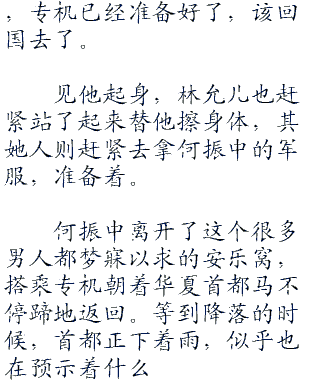 ，专机已经准备好了，该回
国去了。
见他起身，林允儿也赶
紧站了起来替他擦身体，其
她人则赶紧去拿何振中的军
服，准备着。
何振中离开了这个很多
男人都梦寐以求的安乐窝，
搭乘专机朝着华夏首都马不
停蹄地返回。等到降落的时
候，首都正下着雨，似乎也
在预示着什么